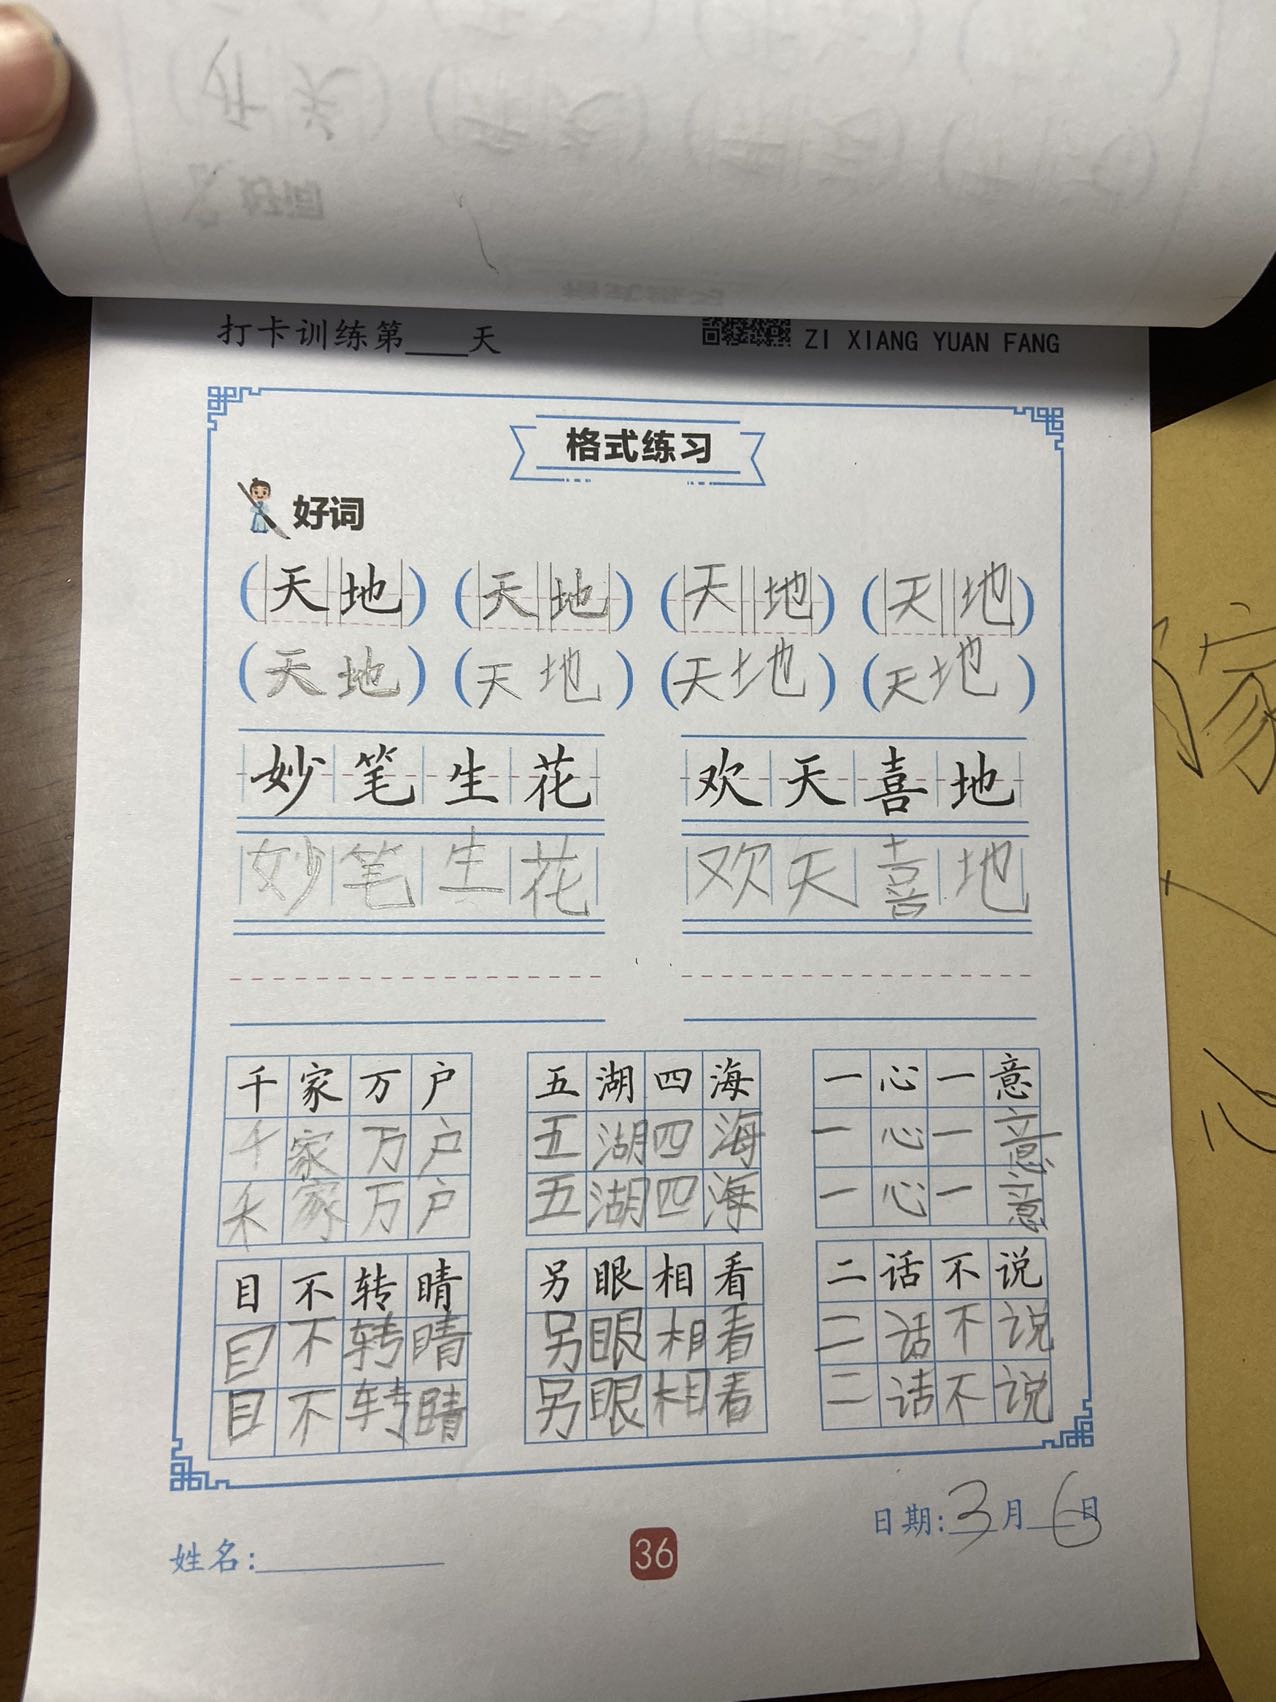 好词
打卡训练第____天 ZI XIANG YUAN FANG
格式练习
好词
(天地) (天地) (天地) (天地)
(天地) (天地) (天地) (天地)
妙笔生花 欢天喜地
妙笔生花 欢天喜地
千家万户 五湖四海 一心一意
千家万户 五湖四海 一心一意
禾家万户 五湖四海 一心一意
目不转睛 另眼相看 二话不说
目不转睛 另眼相看 二话不说
目不转睛 另眼相看 二话不说
日期:3月6日
姓名:
36
家
心